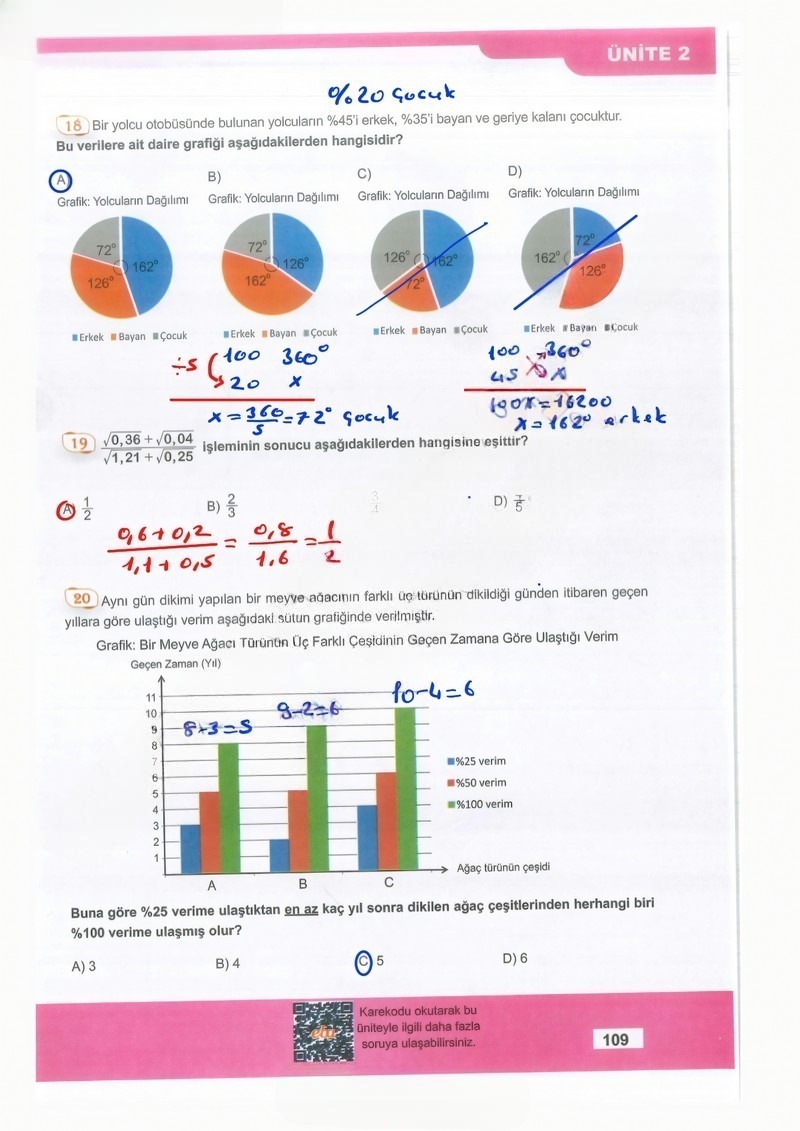 ÜNİTE 2
%20 Çocuk
18 Bir yolcu otobüsünde bulunan yolcuların %45'i erkek, %35'i bayan ve geriye kalanı çocuktur.
Bu verilere ait daire grafiği aşağıdakilerden hangisidir?
A) B) C) D)
Grafik: Yolcuların Dağılımı Grafik: Yolcuların Dağılımı Grafik: Yolcuların Dağılımı Grafik: Yolcuların Dağılımı
72° 162° 126°
72° 126° 162°
126° 162° 72°
162° 72° 126°
Erkek Bayan Çocuk Erkek Bayan Çocuk Erkek Bayan Çocuk Erkek Bayan Çocuk
÷5 100 360°
20 x
x = 360/5 = 72° Çocuk
100 360°
45 x
100x = 16200
x = 162° erkek
19 √0,36 + √0,04 / √1,21 + √0,25 işleminin sonucu aşağıdakilerden hangisine eşittir?
A) 1/2 B) 2/3 3/4 D) 7/5
0,6 + 0,2 / 1,1 + 0,5 = 0,8 / 1,6 = 1/2
20 Aynı gün dikimi yapılan bir meyve ağacının farklı üç türünün dikildiği günden itibaren geçen
yıllara göre ulaştığı verim aşağıdaki sütun grafiğinde verilmiştir.
Grafik: Bir Meyve Ağacı Türünün Üç Farklı Çeşidinin Geçen Zamana Göre Ulaştığı Verim
Geçen Zaman (Yıl)
11
10
9
8
7
6
5
4
3
2
1
8-3=5
9-2=6
10-4=6
%25 verim
%50 verim
%100 verim
A B C
Ağaç türünün çeşidi
Buna göre %25 verime ulaştıktan en az kaç yıl sonra dikilen ağaç çeşitlerinden herhangi biri
%100 verime ulaşmış olur?
A) 3 B) 4 C) 5 D) 6
Karekodu okutarak bu
üniteyle ilgili daha fazla
soruya ulaşabilirsiniz.
109